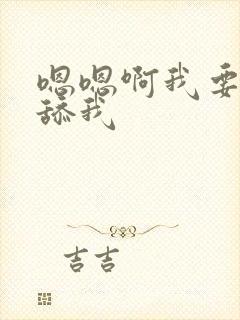 嗯嗯啊我要
舔我
吉吉